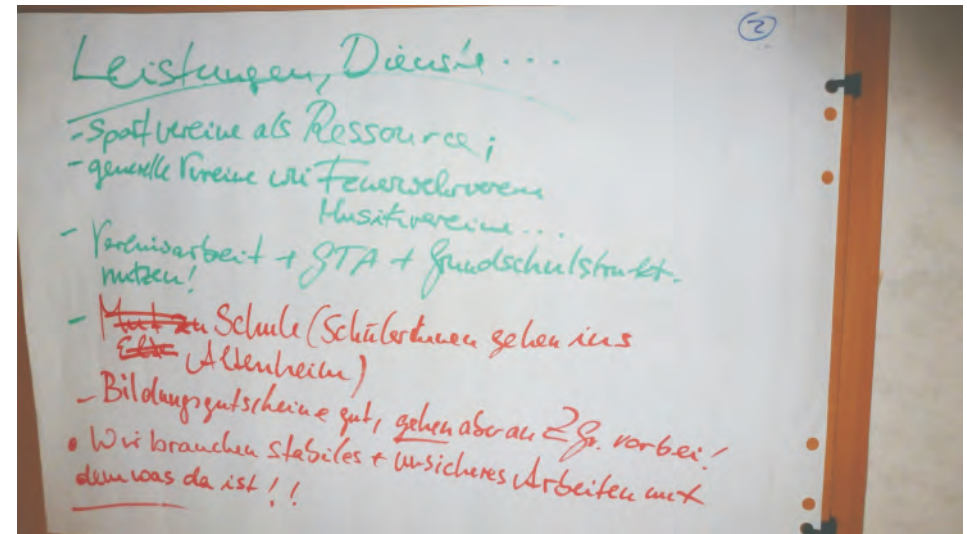 ②
Leistungen, Dienste...
- Sportvereine als Ressource;
- generelle Vereine wie Feuerwehrverein
Musikvereine...
- Vereinsarbeit + GTA + Grundschulstrukt.
nutzen!
- Mut zu Schule (Schülerinnen gehen ins
Altenheim)
- Bildungsgutscheine gut, gehen aber an Zgr. vorbei!
• Wir brauchen stabiles + Arbeiten mit
dem was da ist!!